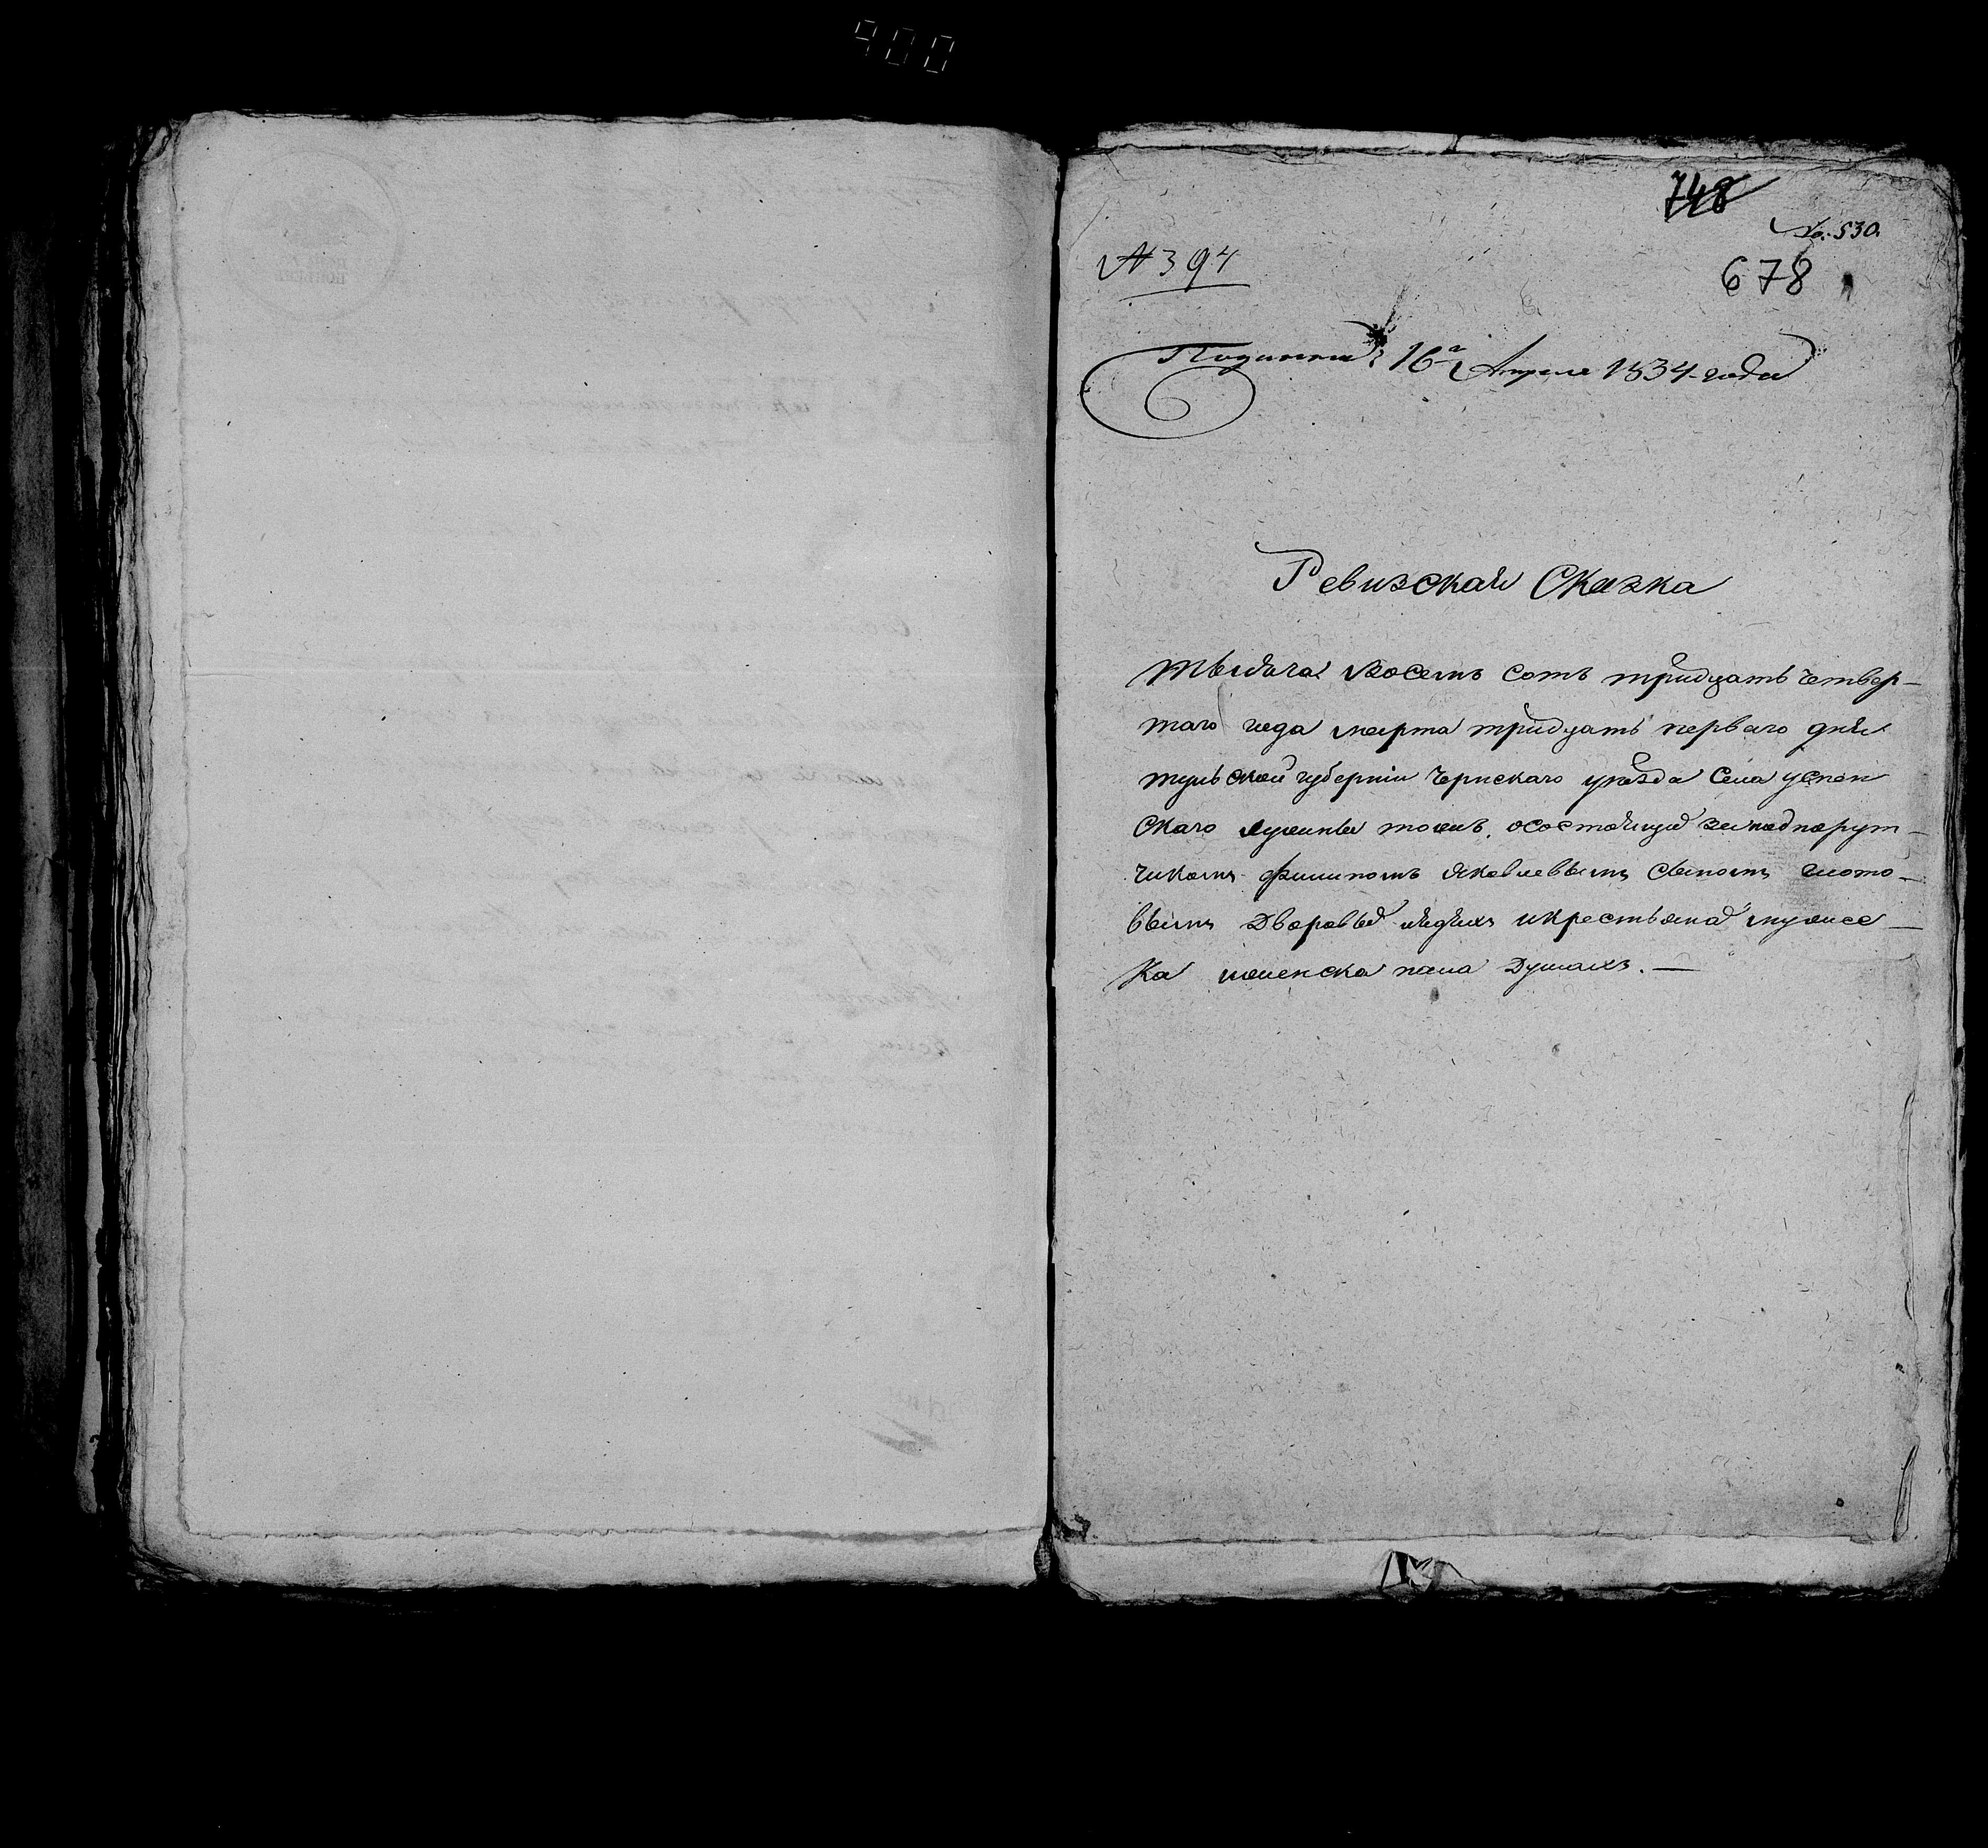 900
748
№. 530.
№ 394
678
Подана 16го Апреля 1834 года
Ревизская Сказка
Тысяча восемъ сотъ тридцать четвер-
таго года марта тридцать перваго дня
тульской губерніи Чернскаго уезда Села успен
скаго тожъ. осостоящи за подпорут-
чикомъ Филипомъ Яковлевымъ сыномъ
вымъ дворовые людяхъ икрестьяна мужес
ка иженска пала душахъ. —